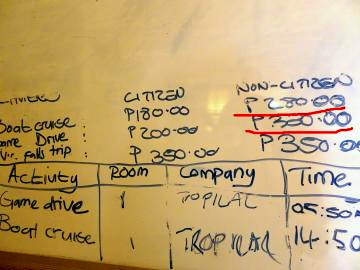 CITIZEN NON-CITIZEN
Boat cruise : P180.00 P280.00
Game Drive : P200.00 P300.00
Vic. falls trip : P350.00 P350.00
Activity Room Company Time
Game drive 1 TROPICAL 05:30
Boat cruise 1 TROPICAL 14:50